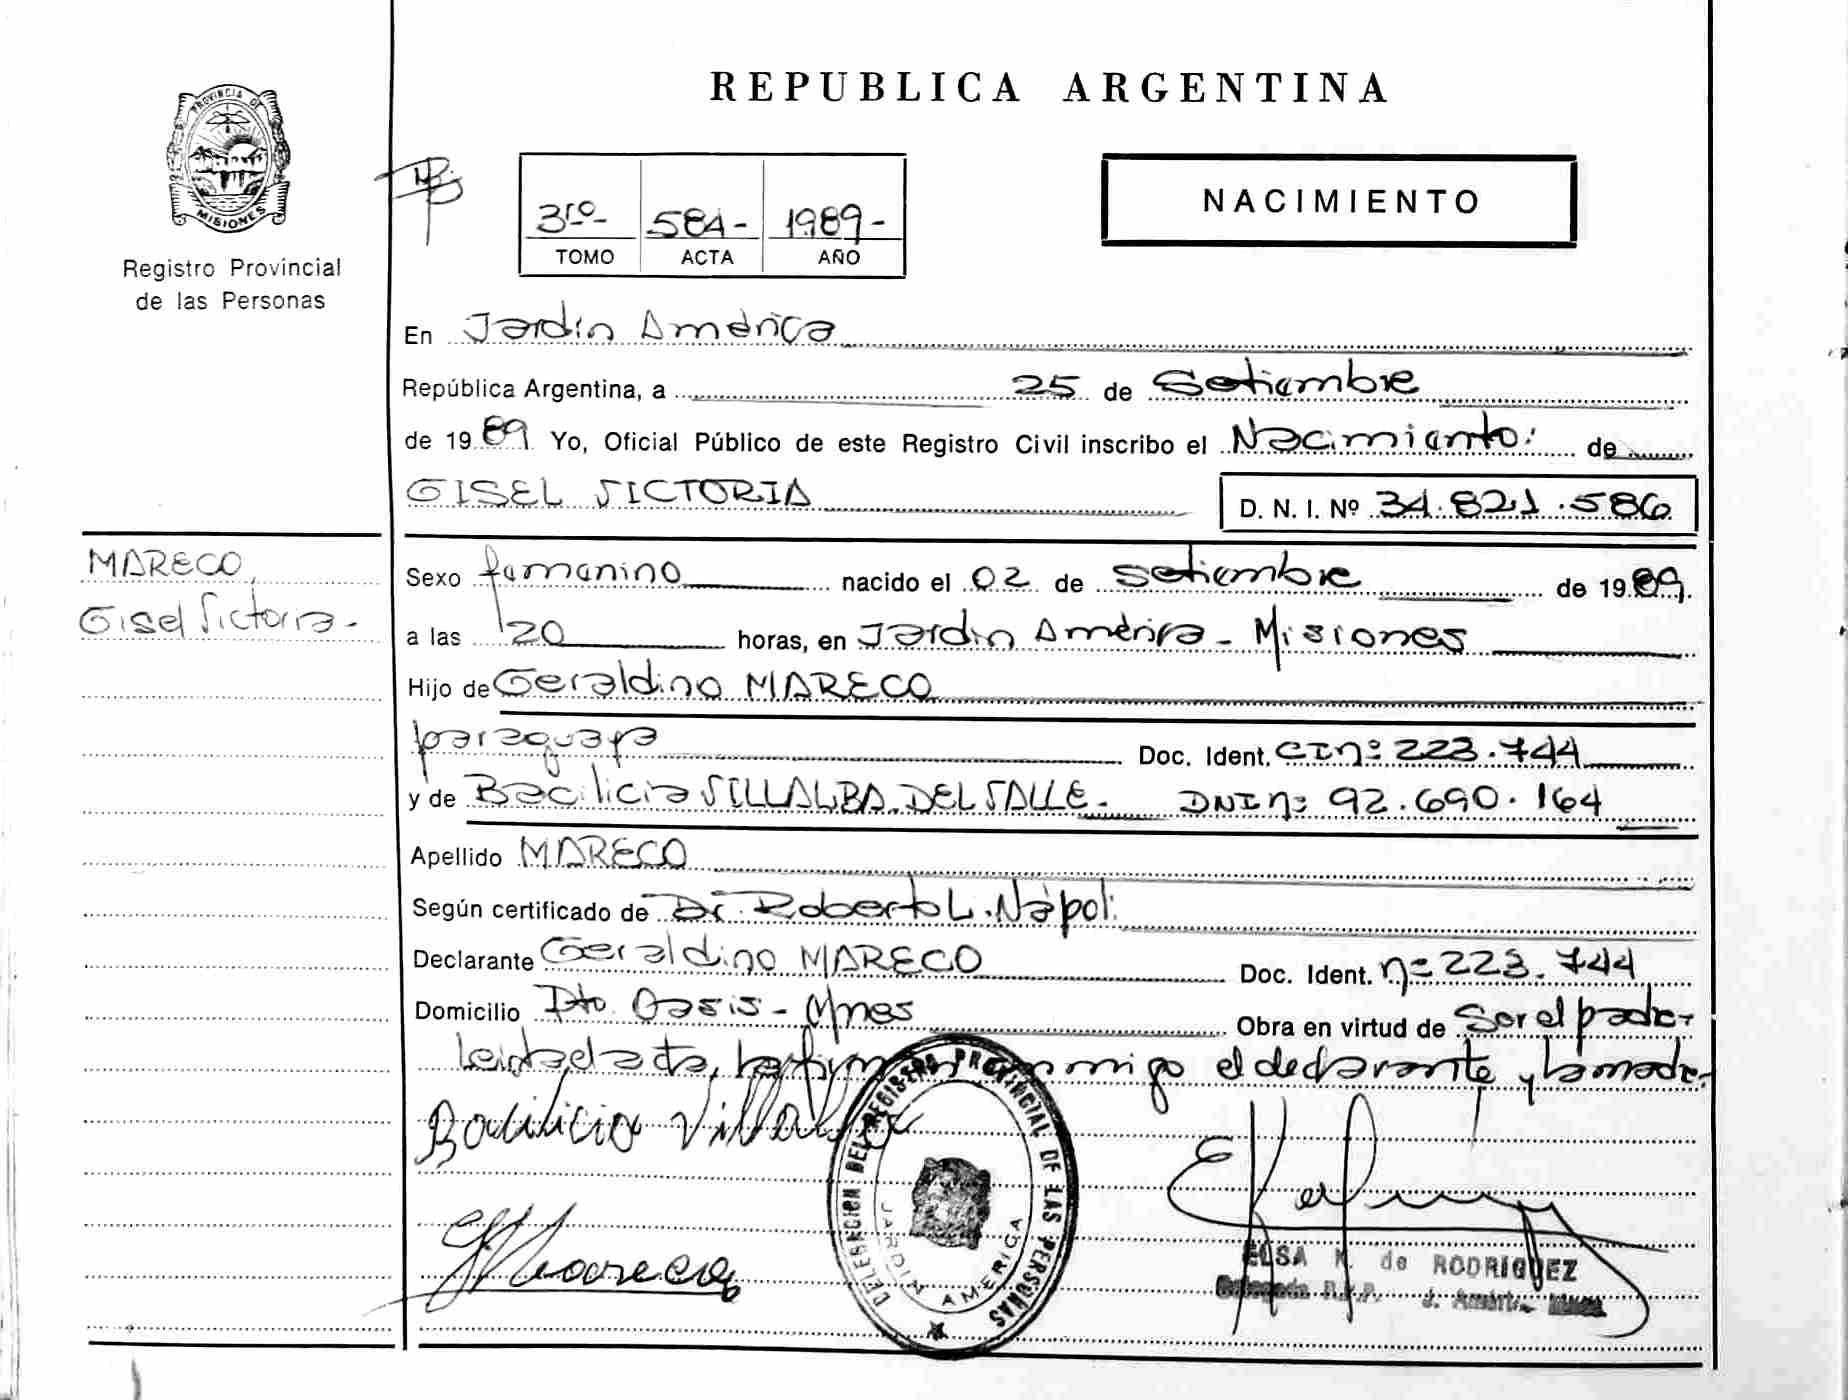 PROVINCIA DE
MISIONES
Registro Provincial
de las Personas
REPUBLICA ARGENTINA
3ro- 584- 1989-
TOMO ACTA AÑO
NACIMIENTO
En Jardín América
República Argentina, a 25 de Setiembre
de 1989 Yo, Oficial Público de este Registro Civil inscribo el Nacimiento: de
GISEL VICTORIA D. N. I. Nº 34.821.586
MARECO,
Gisel Victoria-
Sexo femenino nacido el 02 de Setiembre de 1989.
a las 20 horas, en Jardín América - Misiones
Hijo de Geraldino MARECO
paraguaya Doc. Ident. CI nº 223.744
y de Bacilicia VILLALBA DEL VALLE - DNI nº 92.690.164
Apellido MARECO
Según certificado de Dr. Roberto L. Nápoli
Declarante Geraldino MARECO Doc. Ident. nº 223.744
Domicilio Pto. Oasis - Mnes Obra en virtud de Ser el padre-
Leída el acta, la firman conmigo el declarante y la madre-
Bacilicia Villalba
DELEGACION DEL REGISTRO PROVINCIAL DE LAS PERSONAS
JARDIN AMERICA
Mareco
ELSA K. de RODRIGUEZ
Delegada R.P.P. J. América Mnes.